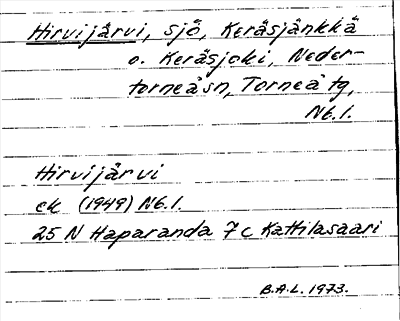 Hirvijärvi, sjö, Keräsjänkkä
o. Keräsjoki, Neder-
torneå sn, Torneå tg,
Nb. l.
Hirvijärvi
ek (1949) Nb. l.
25 N Haparanda 7c Kattilasaari
B.A.L. 1973.